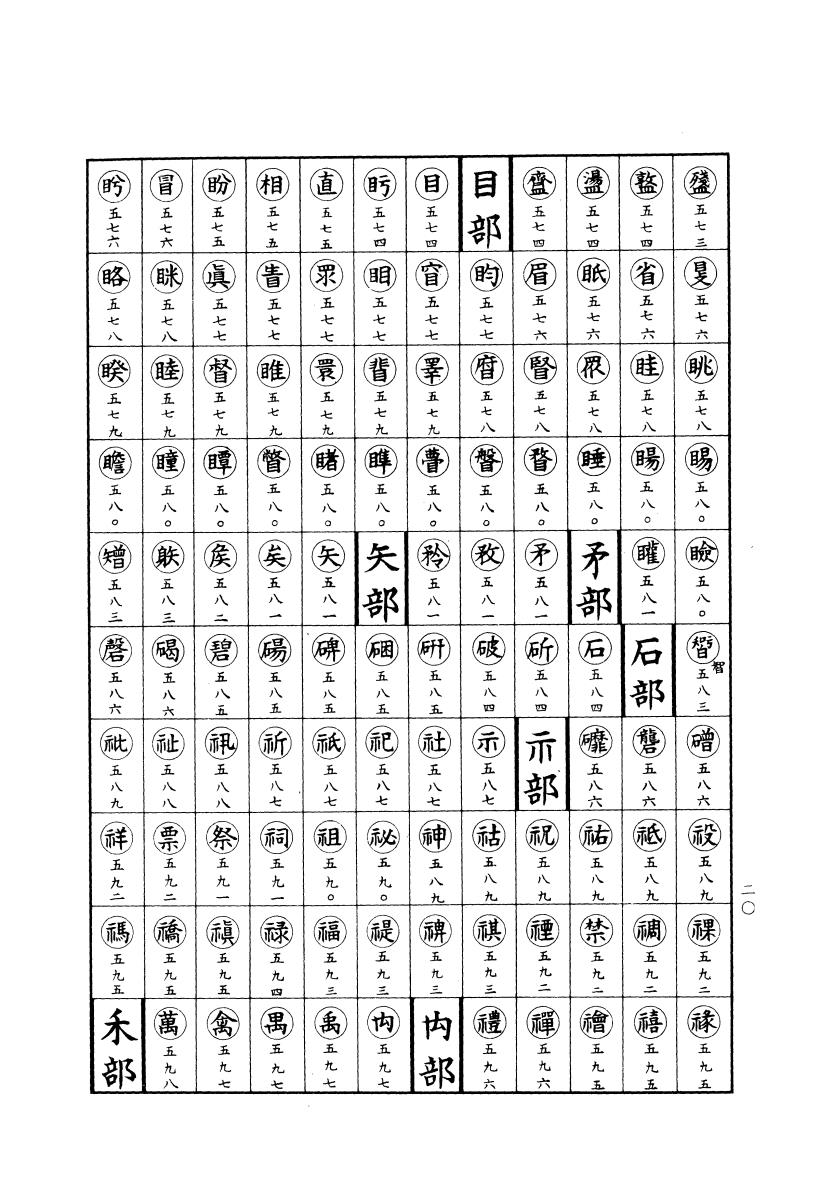 盞 五七三
盩 五七四
盪 五七四
齍 五七四
目部
目 五七四
盱 五七四
直 五七五
相 五七五
盼 五七五
冒 五七六
盻 五七六
五七六
省 五七六
眂 五七六
眉 五七六
盷 五七七
五七七
明 五七七
眔 五七七
眚 五七七
眞 五七七
眯 五七八
眳 五七八
眺 五七八
眭 五七八
眾 五七八
五七八
五七八
睪 五七九
五七九
睘 五七九
睢 五七九
督 五七九
睦 五七九
睽 五七九
睗 五八〇
暘 五八〇
睡 五八〇
瞀 五八〇
瞥 五八〇
瞢 五八〇
五八〇
睹 五八〇
瞥 五八〇
瞫 五八〇
瞳 五八〇
瞻 五八〇
瞼 五八〇
矔 五八一
矛部
矛 五八一
敄 五八一
矜 五八一
矢部
矢 五八一
矣 五八一
矦 五八二
躲 五八三
矰 五八三
智 五八三
石部
石 五八四
斫 五八四
破 五八四
研 五八五
硱 五八五
碑 五八五
碭 五八五
碧 五八五
碣 五八六
磬 五八六
磳 五八六
礱 五八六
五八六
示部
示 五八七
社 五八七
祀 五八七
祇 五八七
祈 五八七
五八八
祉 五八八
祉 五八九
祋 五八九
祗 五八九
祐 五八九
祝 五八九
祜 五八九
神 五八九
祕 五九〇
祖 五九〇
祠 五九一
祭 五九一
票 五九二
祥 五九二
祼 五九二
禂 五九二
禁 五九二
禋 五九二
祺 五九三
裨 五九三
禔 五九三
福 五九三
禄 五九四
禛 五九五
禚 五九五
禡 五九五
五九五
禧 五九五
禬 五九五
禪 五九六
禮 五九六
禸部
禸 五九七
禹 五九七
禺 五九七
禽 五九七
萬 五九八
禾部
二〇